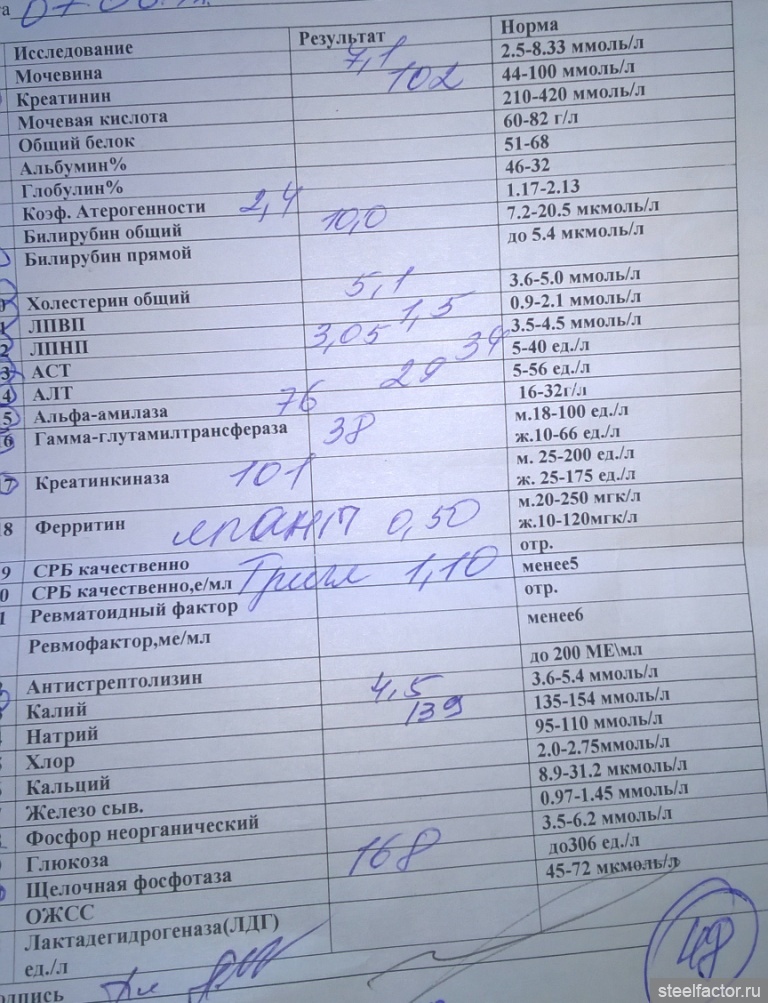 Исследование Результат Норма
Мочевина 7,1 2.5-8.33 ммоль/л
Креатинин 102 44-100 ммоль/л
Мочевая кислота 210-420 ммоль/л
Общий белок 60-82 г/л
Альбумин% 51-68
Глобулин% 46-32
Коэф. Атерогенности 2,4 1.17-2.13
Билирубин общий 10,0 7.2-20.5 мкмоль/л
Билирубин прямой до 5.4 мкмоль/л
Холестерин общий 5,1 3.6-5.0 ммоль/л
ЛПВП 1,5 0.9-2.1 ммоль/л
ЛПНП 3,05 3.5-4.5 ммоль/л
АСТ 34 5-40 ед./л
АЛТ 29 5-56 ед./л
Альфа-амилаза 76 16-32г/л
Гамма-глутамилтрансфераза 38 м.18-100 ед./л
ж.10-66 ед./л
Креатинкиназа 101 м. 25-200 ед./л
ж. 25-175 ед./л
18 Ферритин 0,50 м.20-250 мгк/л
ж.10-120мгк/л
9 СРБ качественно отр.
0 СРБ качественно,е/мл Тригл 1,10 менее5
1 Ревматоидный фактор отр.
Ревмофактор,ме/мл менее6
Антистрептолизин до 200 МЕ\мл
Калий 4,5 3.6-5.4 ммоль/л
Натрий 139 135-154 ммоль/л
Хлор 95-110 ммоль/л
Кальций 2.0-2.75ммоль/л
Железо сыв. 8.9-31.2 мкмоль/л
Фосфор неорганический 0.97-1.45 ммоль/л
Глюкоза 3.5-6.2 ммоль/л
Щелочная фосфотаза 168 до306 ед./л
ОЖСС 45-72 мкмоль/л
Лактадегидрогеназа(ЛДГ)
ед./л
одпись
48
steelfactor.ru